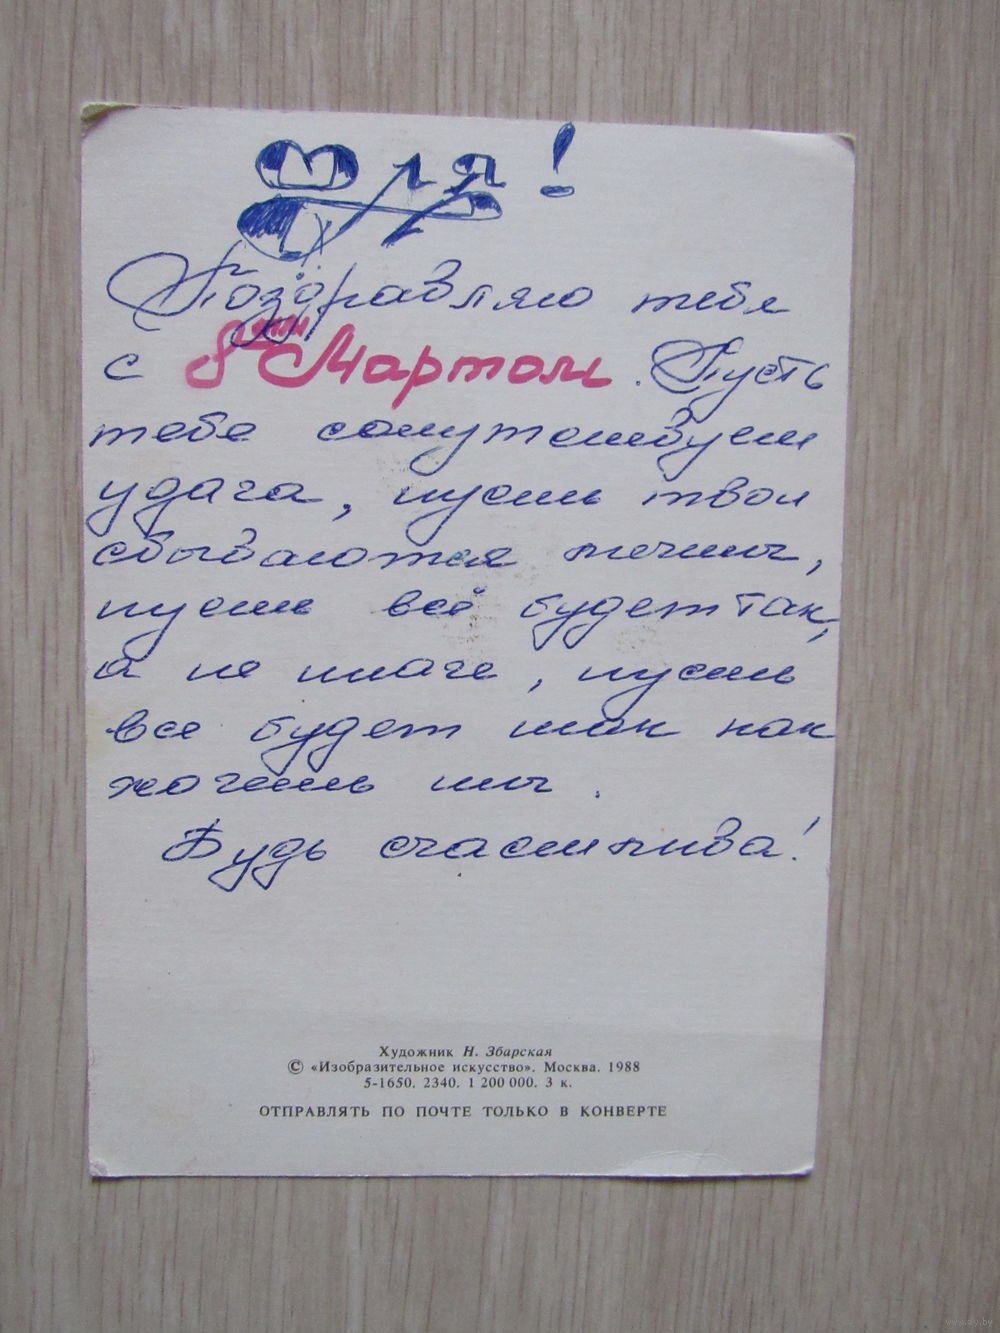 Оля!
Поздравляю тебя
с 8ым Мартом. Пусть
тебе сопутствует
удача, пусть твои
сбываются мечты,
пусть всё будет так,
а не иначе, пусть
все будет так как
хочешь ты.
Будь счастлива!
Художник Н. Збарская
© «Изобразительное искусство». Москва. 1988
5-1650. 2340. 1 200 000. 3 к.
ОТПРАВЛЯТЬ ПО ПОЧТЕ ТОЛЬКО В КОНВЕРТЕ
www.ay.by